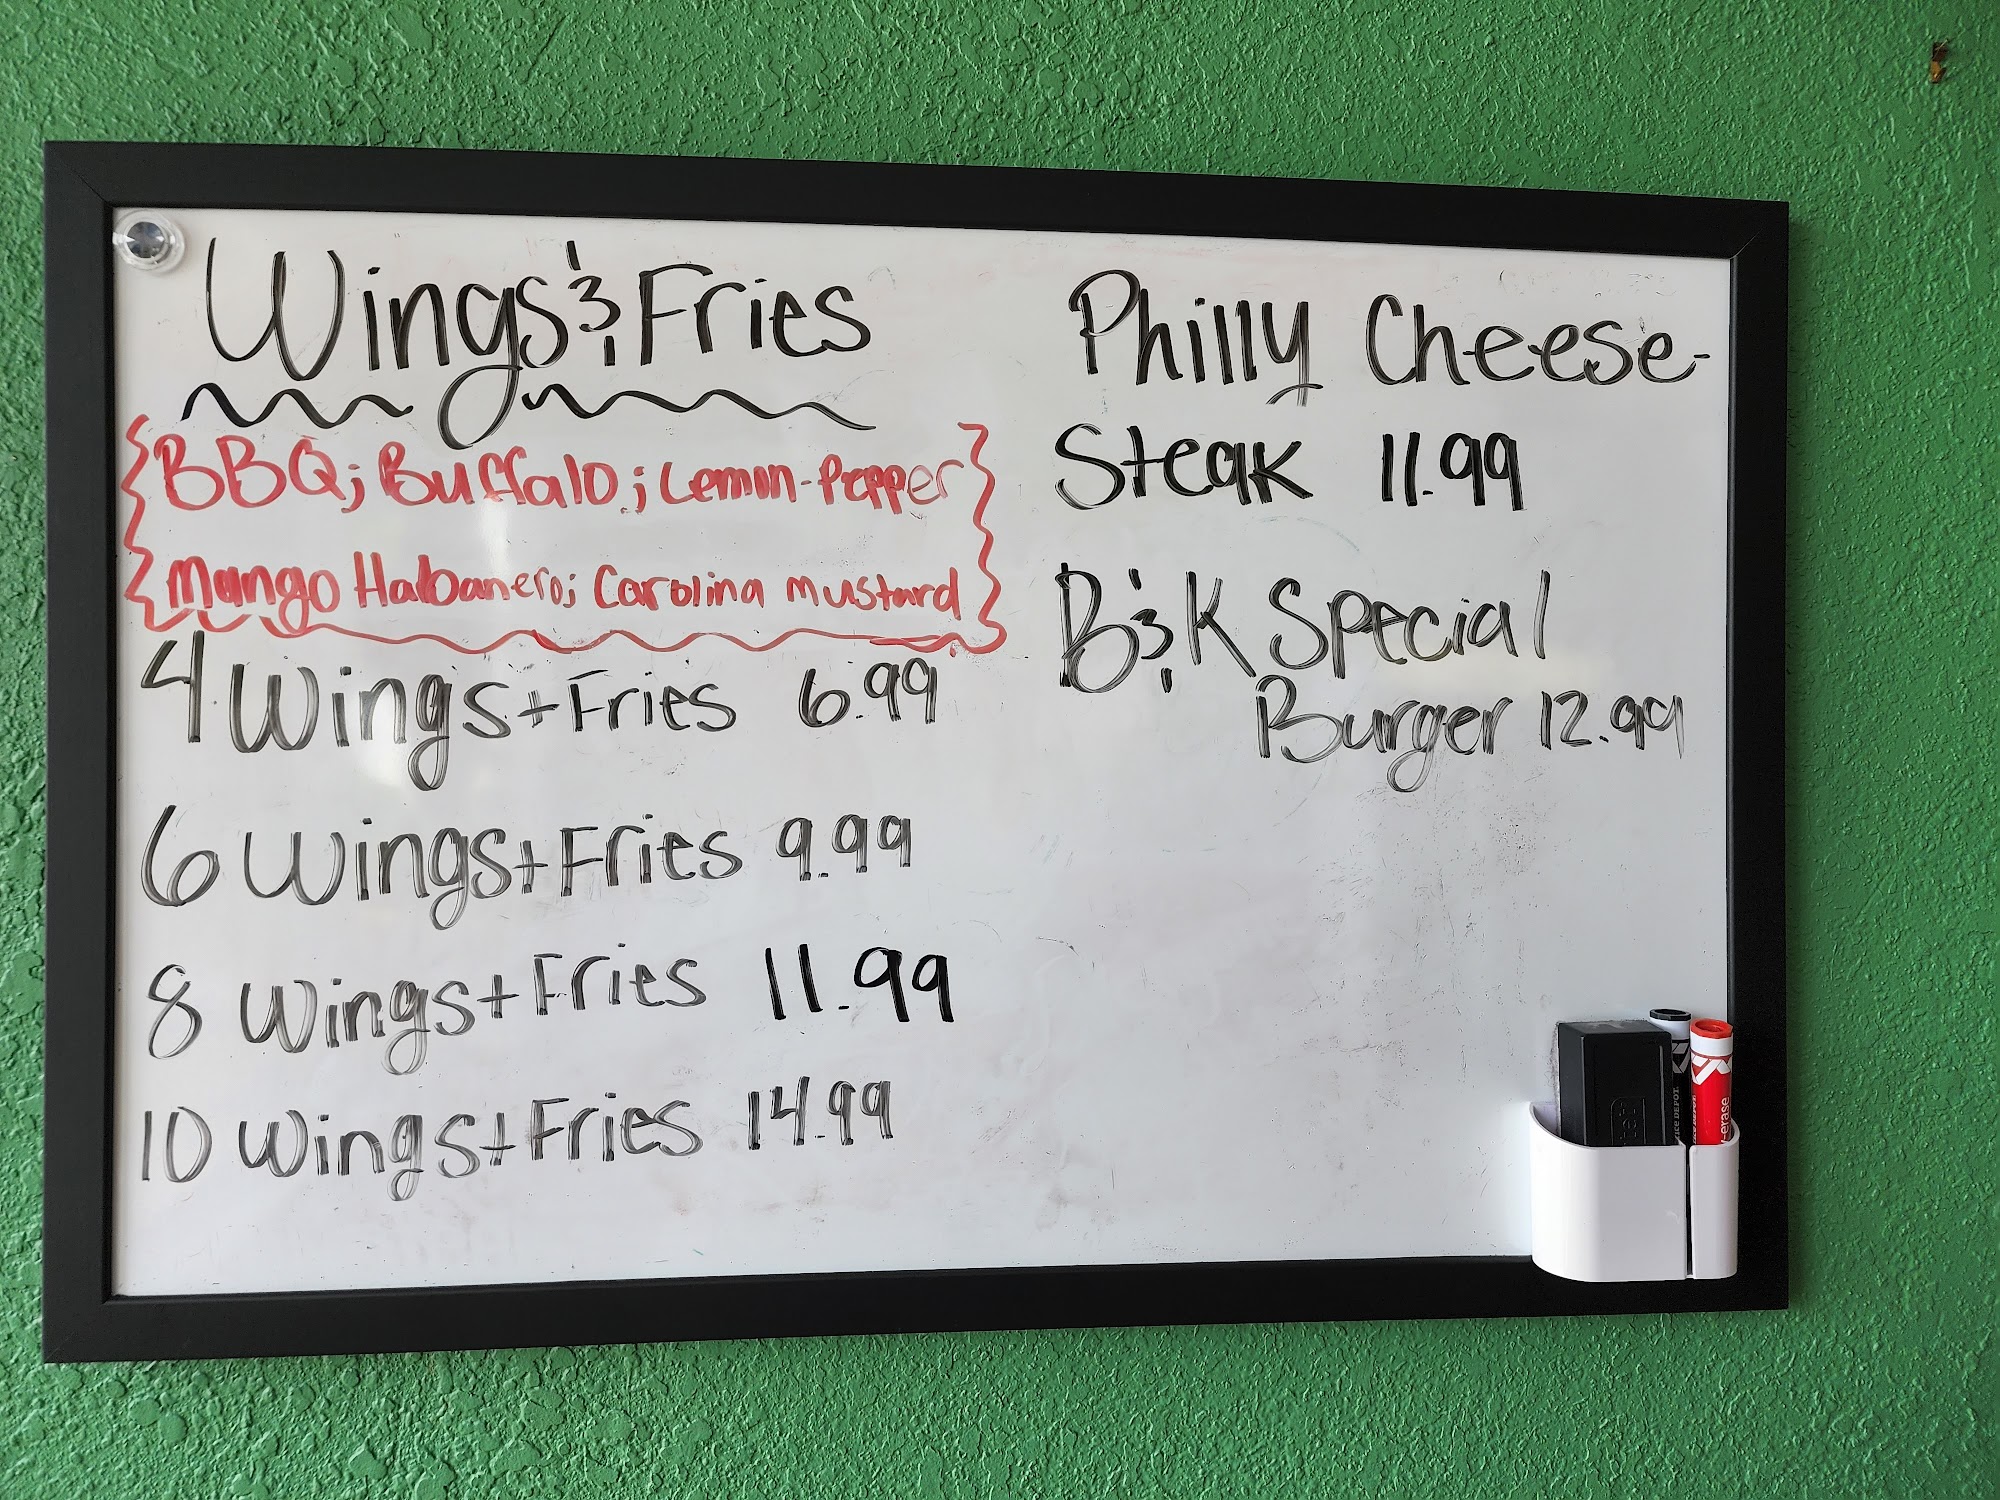 Wings & Fries
BBQ; Buffalo; Lemon-Pepper
Mango Habanero; Carolina Mustard
4 Wings + Fries 6.99
6 Wings + Fries 9.99
8 Wings + Fries 11.99
10 Wings + Fries 14.99
Philly Cheese-
Steak 11.99
B&K Special
Burger 12.99